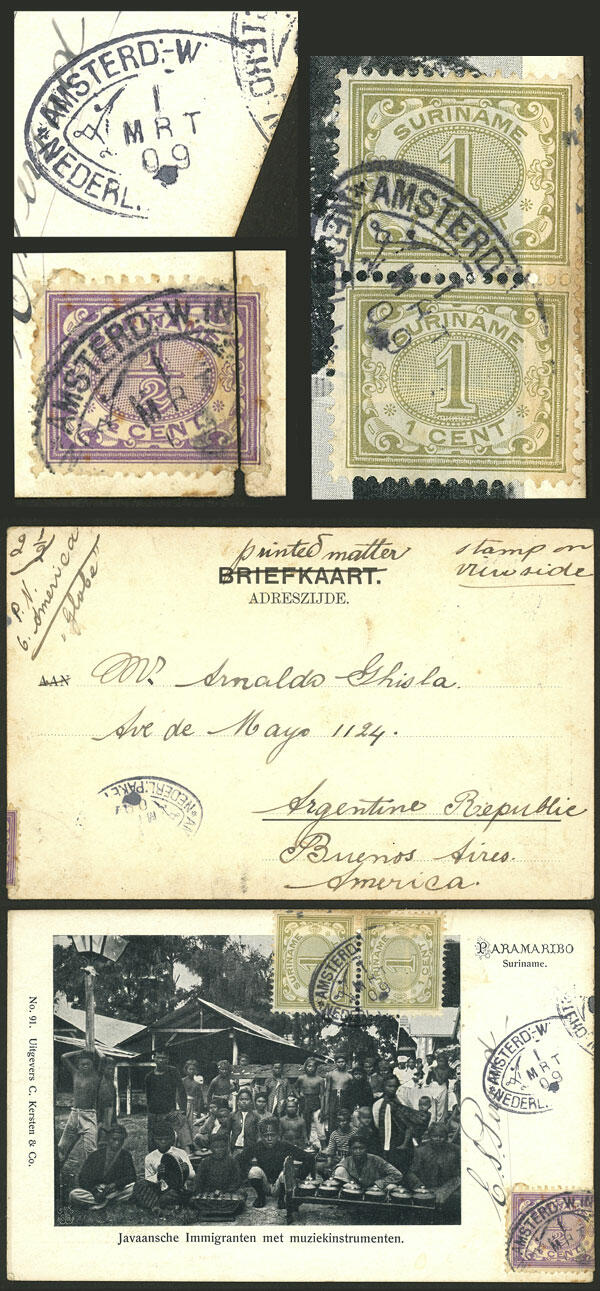 AMSTERD.-W.
1
MRT
09
NEDERL.
SURINAME
1
AMSTERD.-W
1
MRT
09
SURINAME
1
1 CENT
AMSTERD.-W.IN
1
MRT
½
CENT
2½
P.N.
6. America
"Globe"
printed matter
stamp on
view side
BRIEFKAART.
ADRESZIJDE.
AAN
Mr. Arnaldo Ghisla.
Ave de Mayo 1124.
NEDERL.PAKET
Argentine Republic
Buenos Aires.
America.
SURINAME
1
SURINAME
1
1 CENT
AMSTERD.
NEDERL.
09
PARAMARIBO
Suriname.
AMSTERD.-W.
1
MRT
09
NEDERL.
AMSTERD.-W.IN
CENT
No. 91. Uitgevers C. Kersten & Co.
Javaansche Immigranten met muziekinstrumenten.